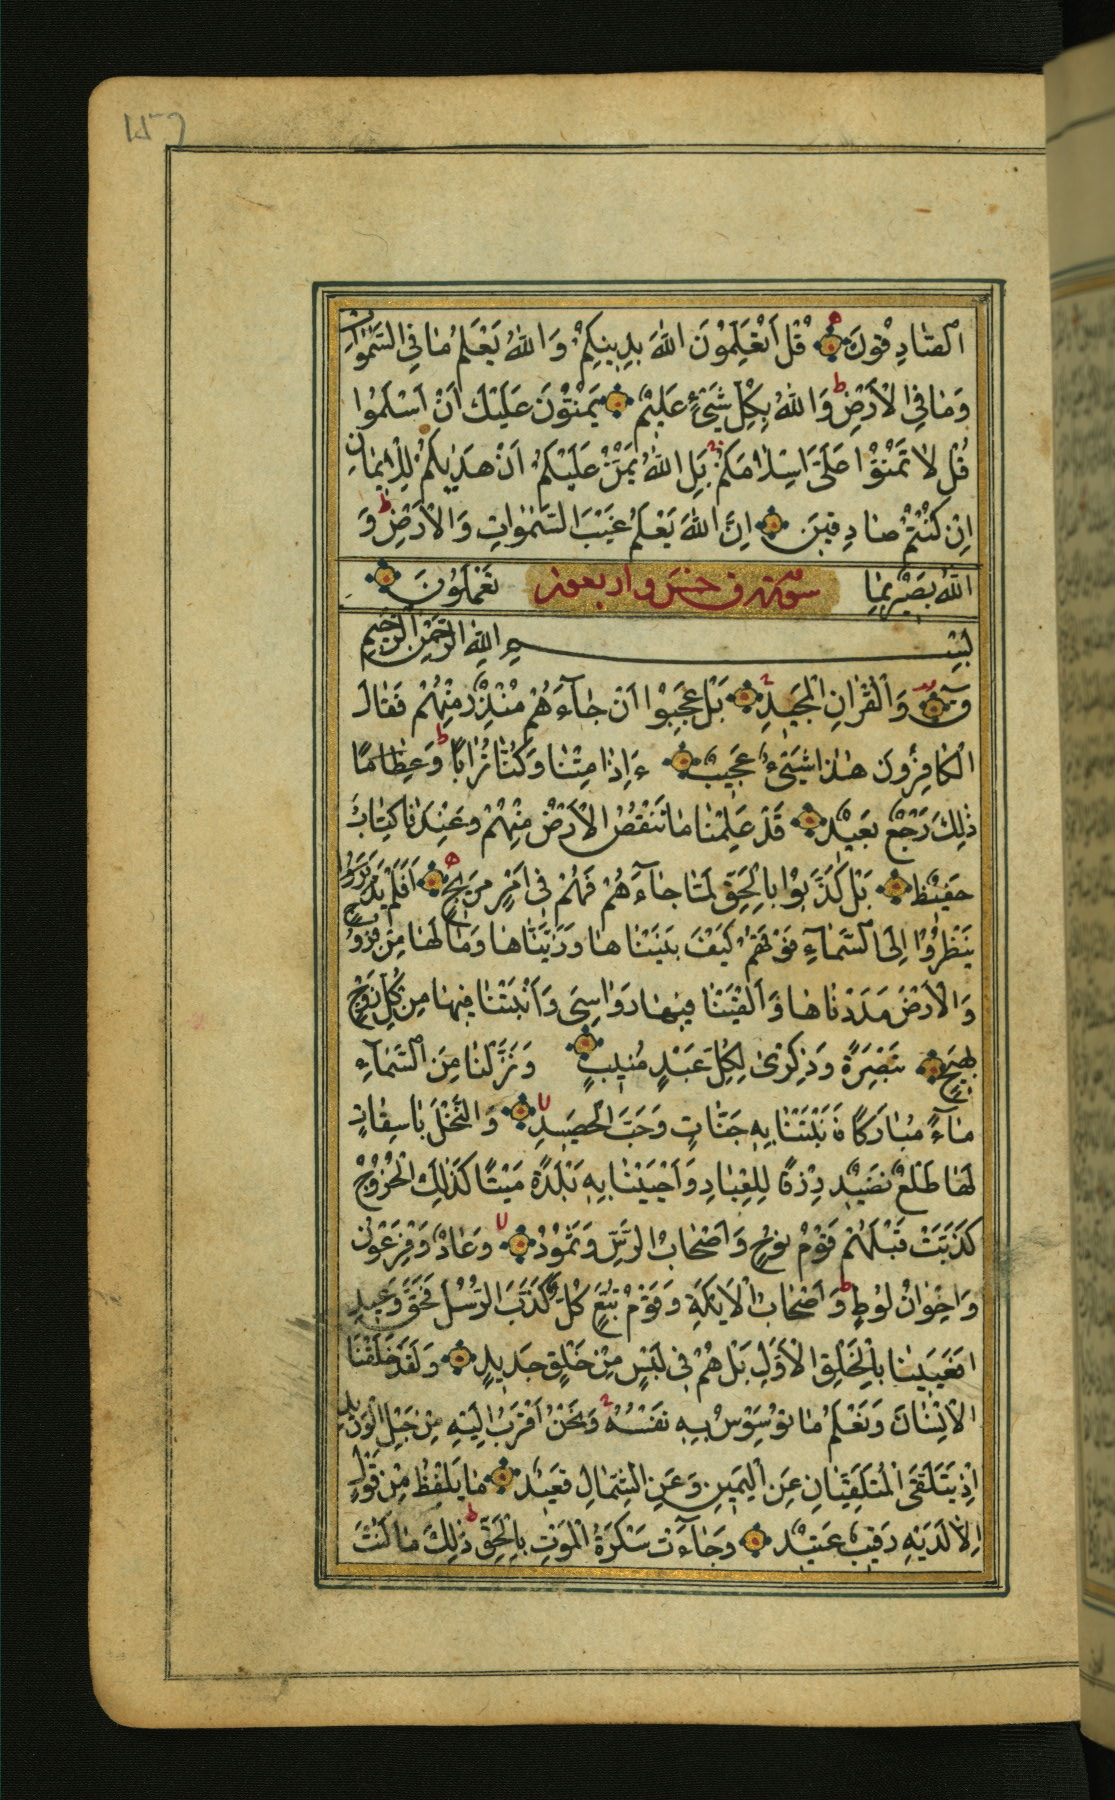 الصَّادِقُونَ قُلْ أَتُعَلِّمُونَ اللهَ بِدِينِكُمْ وَاللهُ يَعْلَمُ مَا فِي السَّمٰوَاتِ
وَمَا فِي الْأَرْضِ وَاللهُ بِكُلِّ شَيْءٍ عَلِيمٌ يَمُنُّونَ عَلَيْكَ اَنْ اَسْلَمُوا
قُلْ لَا تَمُنُّوْا عَلَىَّ اِسْلَامَكُمْ بَلِ اللهُ يَمُنُّ عَلَيْكُمْ اَنْ هَدٰيكُمْ لِلْاِيمَانِ
اِنْ كُنْتُمْ صَادِقِينَ اِنَّ اللهَ يَعْلَمُ غَيْبَ السَّمٰوَاتِ وَالْاَرْضِ وَ
اللهُ بَصِيرٌ بِمَا سورة ق خمس واربعون تَعْمَلُونَ
بِسْمِ اللهِ الرَّحْمٰنِ الرَّحِيمِ
قٓ وَالْقُرْاٰنِ الْمَجِيدِ بَلْ عَجِبُوا اَنْ جَآءَهُمْ مُنْذِرٌ مِنْهُمْ فَقَالَ
الْكَافِرُونَ هٰذَا شَيْءٌ عَجِيبٌ ءَاِذَا مِتْنَا وَكُنَّا تُرَابًا وَعِظَامًا
ذٰلِكَ رَجْعٌ بَعِيدٌ قَدْ عَلِمْنَا مَا تَنْقُصُ الْاَرْضُ مِنْهُمْ وَعِنْدَنَا كِتَابٌ
حَفِيظٌ بَلْ كَذَّبُوْا بِالْحَقِّ لَمَّا جَآءَهُمْ فَهُمْ فِي اَمْرٍ مَرِيجٍ اَفَلَمْ
يَنْظُرُوْا اِلَى السَّمَآءِ فَوْقَهُمْ كَيْفَ بَنَيْنَاهَا وَزَيَّنَّاهَا وَمَا لَهَا مِنْ فُرُوجٍ
وَالْاَرْضَ مَدَدْنَاهَا وَاَلْقَيْنَا فِيهَا رَوَاسِيَ وَاَنْبَتْنَا فِيهَا مِنْ كُلِّ زَوْجٍ
بَهِيجٍ تَبْصِرَةً وَذِكْرٰى لِكُلِّ عَبْدٍ مُنِيبٍ وَنَزَّلْنَا مِنَ السَّمَآءِ
مَآءً مُبَارَكًا فَاَنْبَتْنَا بِهِ جَنَّاتٍ وَحَبَّ الْحَصِيدِ وَالنَّخْلَ بَاسِقَاتٍ
لَهَا طَلْعٌ نَضِيدٌ رِزْقًا لِلْعِبَادِ وَاَحْيَيْنَا بِهِ بَلْدَةً مَيْتًا كَذٰلِكَ الْخُرُوجُ
كَذَّبَتْ قَبْلَهُمْ قَوْمُ نُوحٍ وَاَصْحَابُ الرَّسِّ وَثَمُودُ وَعَادٌ وَفِرْعَوْنُ
وَاِخْوَانُ لُوطٍ وَاَصْحَابُ الْاَيْكَةِ وَقَوْمُ تُبَّعٍ كُلٌّ كَذَّبَ الرُّسُلَ فَحَقَّ وَعِيدِ
اَفَعَيِينَا بِالْخَلْقِ الْاَوَّلِ بَلْ هُمْ فِي لَبْسٍ مِنْ خَلْقٍ جَدِيدٍ وَلَقَدْ خَلَقْنَا
الْاِنْسَانَ وَنَعْلَمُ مَا تُوَسْوِسُ بِهِ نَفْسُهُ وَنَحْنُ اَقْرَبُ اِلَيْهِ مِنْ حَبْلِ الْوَرِيدِ
اِذْ يَتَلَقَّى الْمُتَلَقِّيَانِ عَنِ الْيَمِينِ وَعَنِ الشِّمَالِ قَعِيدٌ مَا يَلْفِظُ مِنْ قَوْلٍ
اِلَّا لَدَيْهِ رَقِيبٌ عَتِيدٌ وَجَآءَتْ سَكْرَةُ الْمَوْتِ بِالْحَقِّ ذٰلِكَ مَا كُنْتَ